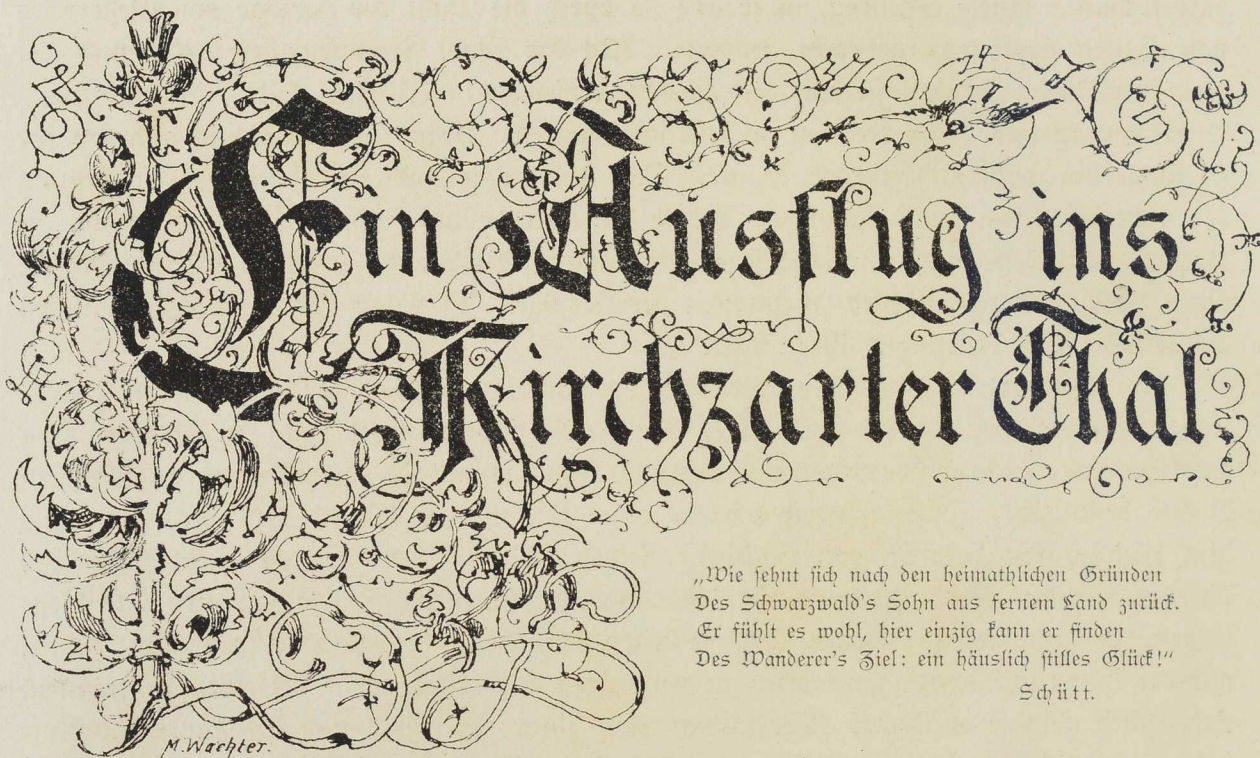 Ein Ausflug ins
Kirchzarter Thal.
„Wie sehnt sich nach den heimathlichen Gründen
Des Schwarzwald's Sohn aus fernem Land zurück.
Er fühlt es wohl, hier einzig kann er finden
Des Wanderer's Ziel: ein häuslich stilles Glück!“
Schütt.
M. Wachter.